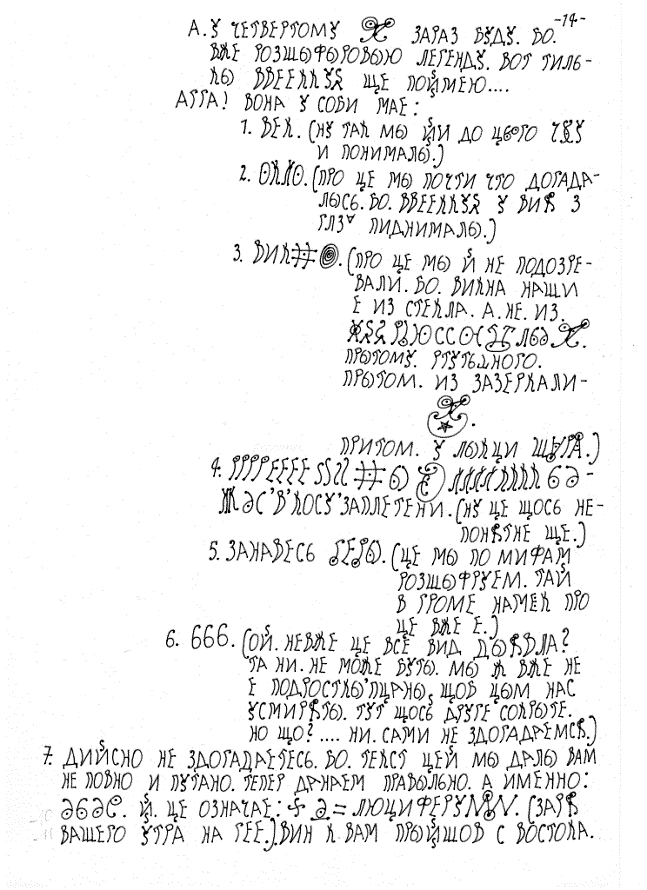 -14-
А. У ЧЕТВЕРТОМУ ЗАРАЗ БУДУ. БО.
ВЖЕ РОЗШЫФЫРОВЫЮ ЛЕГЕНДУ. ВОТ ТИЛЬ-
КЫ ВВЕЕККУЯ ЩЕ ПОЙМЕЮ....
АГГА! ВОНА У СОБИ МАЕ:
1. ВЕК. (НУ ТАК МЫ ЙИ ДО ЦЬОГО
И ПОНИМАЛЫ.)
2. ОККО. (ПРО ЦЕ МЫ ПОЧТИ ЧТО ДОГАДА-
ЛЫСЬ. БО. ВВЕЕККУЯ У ВИЯ З
ГЛЗА ПИДНИМАЛЫ.)
3. ВИК. (ПРО ЦЕ МЫ Й НЕ ПОДОЗРЕ-
ВАЛИ. БО. ВИКНА НАШИ
Е ИЗ СТЕКЛА. А. НЕ. ИЗ.
ПРЫТОМУ. РТУТЬДНОГО.
ПРЫТОМ. ИЗ ЗАЗЕРКАЛИ-
ПРИТОМ. У ЛЫКЦИ
4.
'В'КОСУ'ЗАПЛЕТЕНИ. (НУ ЦЕ ЩОСЬ НЕ-
ПОНЯТНЕ ЩЕ.)
5. ЗАНАВЕСЬ ГЕРЫ. (ЦЕ МЫ ПО МИФАМ
РОЗШЫФРУЕМ. ТАЙ
В ГРОМЕ НАМЕК ПРО
ЦЕ ВЖЕ Е.)
6. 666. (ОЙ. НЕВЖЕ ЦЕ ВСЕ ВИД ДЫЯВЛА?
ТА НИ. НЕ МОЖЕ БУТЫ. МЫ Ж ВЖЕ НЕ
Е ПОДРОСТКЫ'ПЦАНЫ, ЩОБ ЦЫМ НАС
УСМИРЯТЫ. ТУТ ЩОСЬ ДРУГЕ СОКРЫТЕ.
НО ЩО?.... НИ. САМИ НЕ ЗДОГАДАЕМСЯ.)
7. ДИЙСНО НЕ ЗДОГАДАЕТЕСЬ. БО. ТЕКСТ ЦЕЙ МЫ ДАЛЫ ВАМ
НЕ ПОВНО И ПУТАНО. ТЕПЕР ДАНАЕМ ПРАВЫЛЬНО. А ИМЕННО:
Й. ЦЕ ОЗНАЧАЕ: = ЛЮЦИФЕРУ (ЗАРЯ
ВАШЕГО УТРА НА ГЕЕ.) ВИН К ВАМ ПРЫЙШОВ С ВОСТОКА.